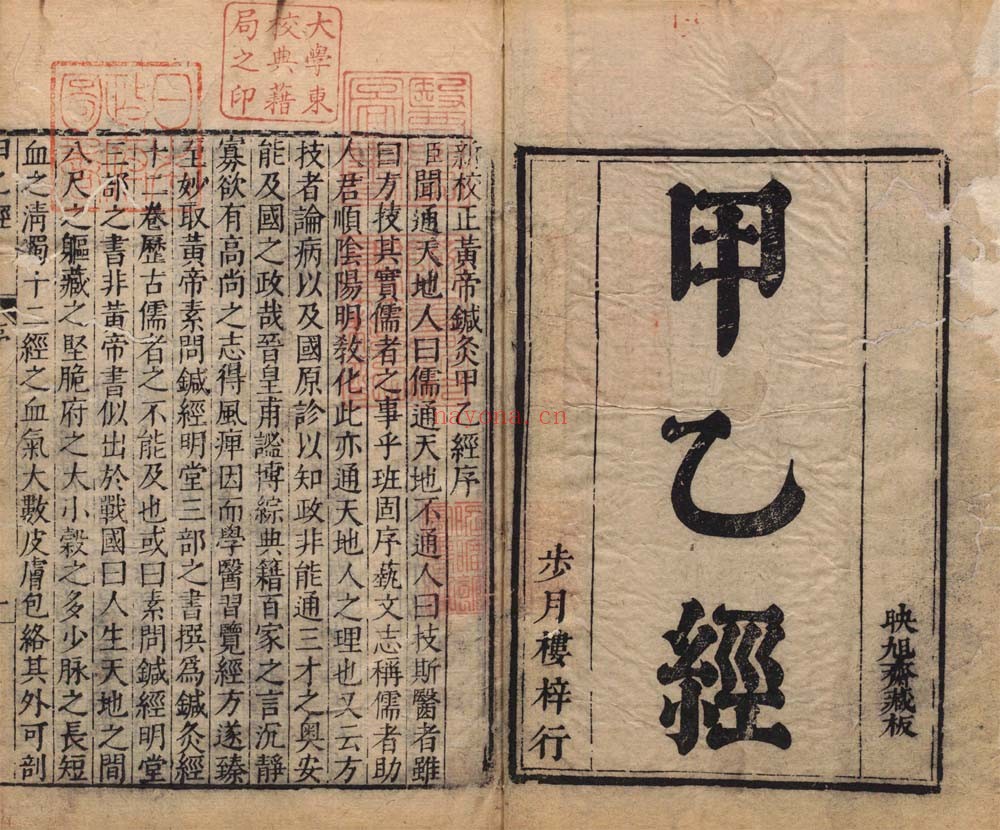 映旭齋藏板
甲乙經
步月樓梓行
大學東
校典藉
局之印
新校正黃帝鍼灸甲乙經序
臣聞通天地人曰儒通天地不通人曰技斯醫者雖
曰方技其實儒者之事乎班固序蓺文志稱儒者助
人君順陰陽明敎化此亦通天地人之理也又云方
技者論病以及國原診以知政非能通三才之奧安
能及國之政哉晉皇甫謐博綜典籍百家之言沉靜
寡欲有高尚之志得風痺因而學醫習覽經方遂臻
至妙取黃帝素問鍼經明堂三部之書撰爲鍼灸經
十二卷歷古儒者之不能及也或曰素問鍼經明堂
三部之書非黃帝書似出於戰國曰人生天地之間
八尺之軀藏之堅脆府之大小穀之多少脉之長短
血之淸濁十二經之血氣大數皮膚包絡其外可剖
甲乙經
序
一
nayona.cn